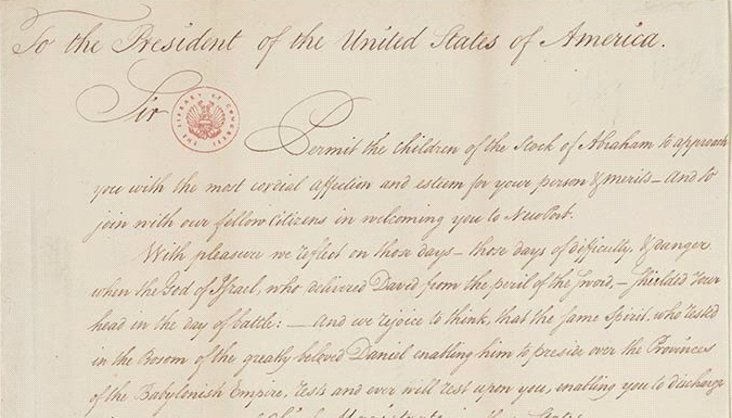 To the President of the United States of America.
Sir
THE LIBRARY OF CONGRESS
Permit the children of the Stock of Abraham to approach
you with the most cordial affection and esteem for your person & merits – And to
join with our fellow Citizens in welcoming you to NewPort.
With pleasure we reflect on those days – those days of difficulty, & danger
when the God of Israel, who delivered David from the peril of the sword, – shielded your
head in the day of battle: – And we rejoice to think, that the same Spirit, who rested
in the Bosom of the greatly beloved Daniel enabling him to preside over the Provinces
of the Babylonish Empire, rests and ever will rest upon you, enabling you to discharge